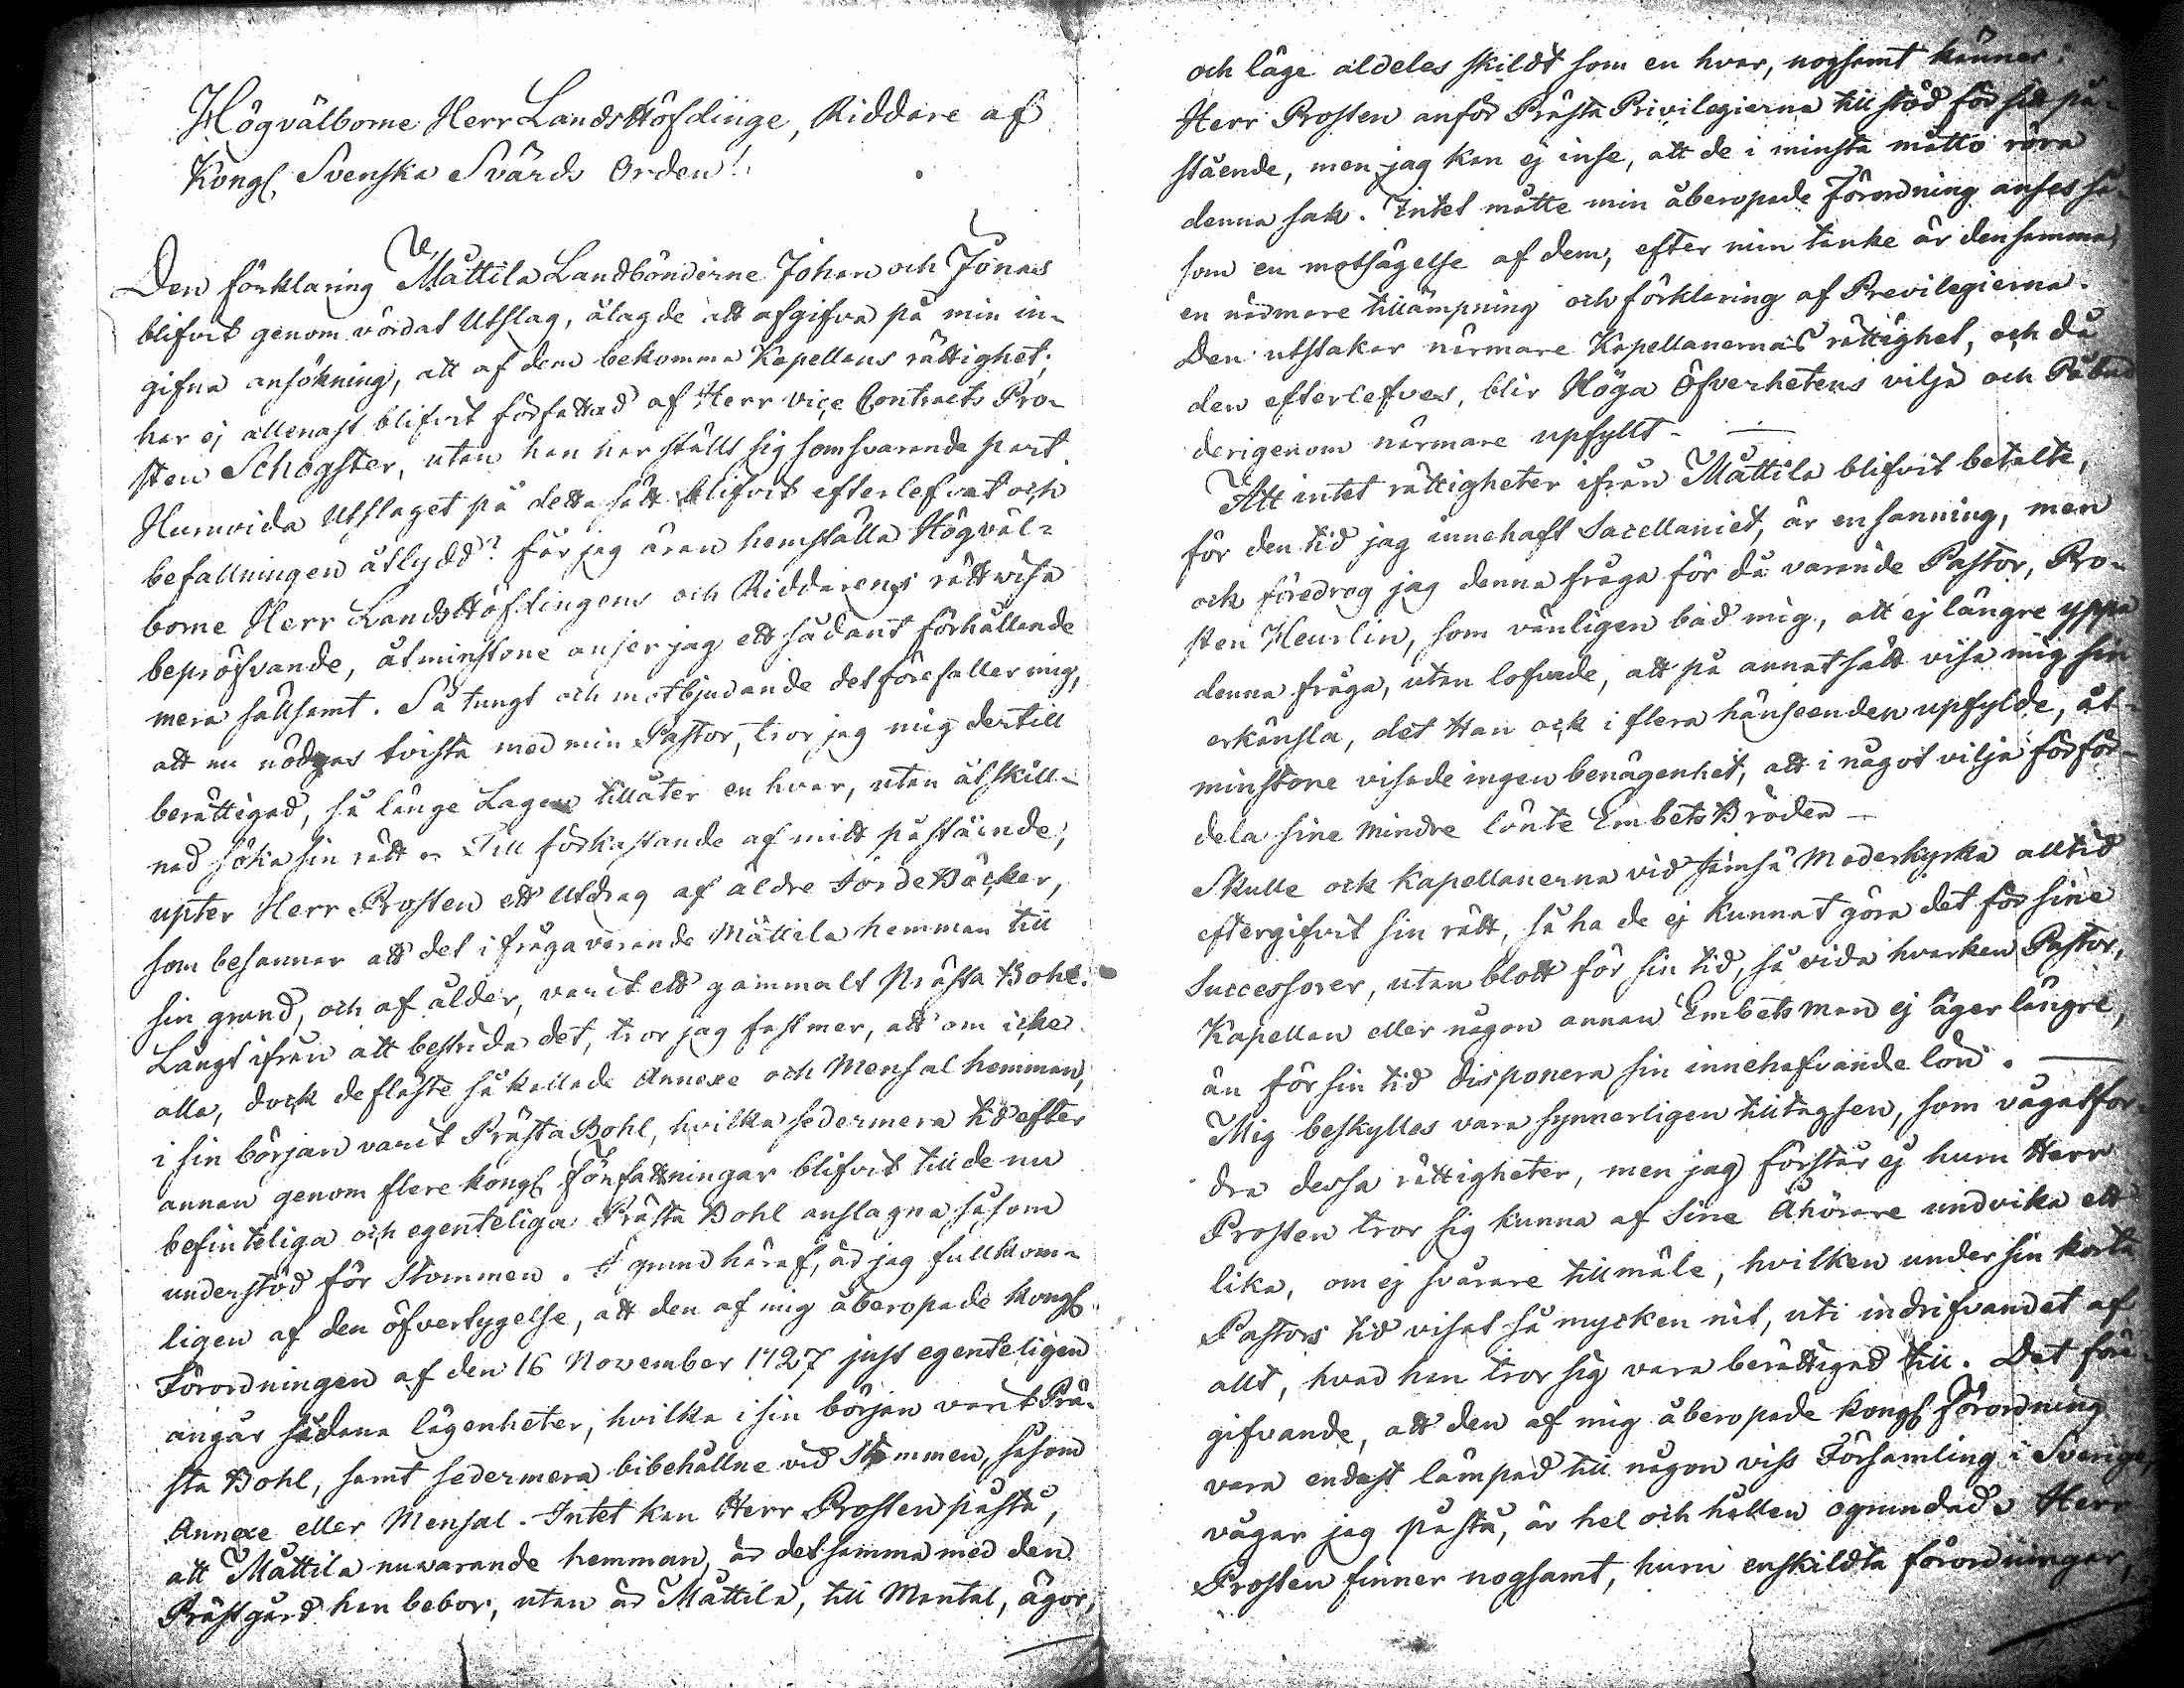 Högvälborne Herr LandsHöfdinge, Riddare af
Kongl. Svenska Svärds Orden!
Den förklaring Mattila Landbönderne Johan och Jonas
blifvit genom vördat Utslag, ålagde att afgifva på min in-
gifna ansökning, att af dem bekomma Kapellans rättighet;
har ej allenast blifvit författad af Herr vice Contracts Pro-
sten Schogster, utan han har ställt sig som svarande part
Hurvvida Utslaget på detta sätt blifvit efterlefvat och
befallningen åtlydd? får jag äran hemställa Högväl-
borne Herr LandsHöfdingens och Riddarens rättvisa
bepröfvande, åtminstone anser jag ett sådant förhållande
mera sällsamt. Så tungt och motbjudande det förefaller mig,
att nu nödgas tvista med min Pastor, tror jag mig dertill
berättigad, så länge Lagen tillåter en hvar, utan åtskill-
nad söka sin rätt. Till förkastande af mitt påstående,
upter Herr Prosten ett Utdrag af äldre JordeBöcker,
som besannar att det i fråga varande Mattila hemman till
sin grund, och af ålder, varit ett gammalt Prästa Bohl.
Långt ifrån att bestrida det, tror jag fastmer, att om icke
alla, dock de fläste så kallade Annexe och Mensal hemman,
i sin början varit PrästaBohl, hvilka sedermera tid efter
annan genom flere kongl. Författningar blifvit till de nu
befinteliga och egenteliga Prästa Bohl anslagna såsom
understöd för Stommen. I grund häraf, är jag fullkom-
ligen af den öfvertygelse, att den af mig åberopade Kongl.
Förordningen af den 16 November 1727 just egenteligen
angår sådana lägenheter, hvilka i sin början varit Prä-
sta Bohl, samt sedermera bibehållne vid Stommen, såsom
Annexe eller Mensal. Intet kan Herr Prosten påstå,
att Mattila nuvarande hemman, är det samma med den
Prästgård han bebor, utan är Mattila, till Mantal, ägor,
och läge aldeles skildt som en hvar, nogsamt känner.
Herr Prosten anför Prästa Privilegierna till stöd för sitt på-
stående, men jag kan ej inse, att de i minsta måtto röra
denna sak. Intet måtte min åberopade Förordning anses så-
som en motsägelse af dem, efter min tanke är densamma,
en närmare tillämpning och förklaring af Previlegierna.
Den utstakar närmare Kapellanernas rättighet, och då
den efterlefves, blir Höga Öfverhetens vilja och Påbud
derigenom närmare upfyllt. —
Att intet rättigheter ifrån Mattila blifvit betalte,
för den tid jag innehaft Sacellaniet, är en sanning, men
ock föredrog jag denna fråga för då varande Pastor, Pro-
sten Heurlin, som vänligen bad mig, att ej längre yppa
denna fråga, utan lofvade, att på annat sätt visa mig sin
erkänsla, det Han ock i flera hänseenden upfylde, åt-
minstone visade ingen benägenhet, att i något vilja förför-
dela sine mindre lönte Embets Bröder —
Skulle ock Kapellanerna vid Jämsä Moderkyrka alltid
eftergifvit sin rätt, så ha de ej kunnat göra det för sine
Successorer, utan blott för sin tid, så vida hvarken Pastor,
Kapellan eller någon annan Embetsman ej äger längre,
än för sin tid disponera sin innehafvande lön. —
Mig beskylles vara synnerligen tilltagsen, som vågat for-
dra dessa rättigheter, men jag förstår ej huru Herr
Prosten tror sig kunna af Sine Åhörare undvika ett
lika, om ej svårare tillmäle, hvilken under sin korta
Pastors tid visat så mycken nit, uti indrifvandet af
allt, hvad han tror sig vara berättigad till. Det före-
gifvande, att den af mig åberopade kongl. Förordning
vara endast lämpad till någon viss Församling i Sverige,
vågar jag påstå, är hel och hållen ogrundad. Herr
Prosten finner nogsamt, huru enskildta förordningar,